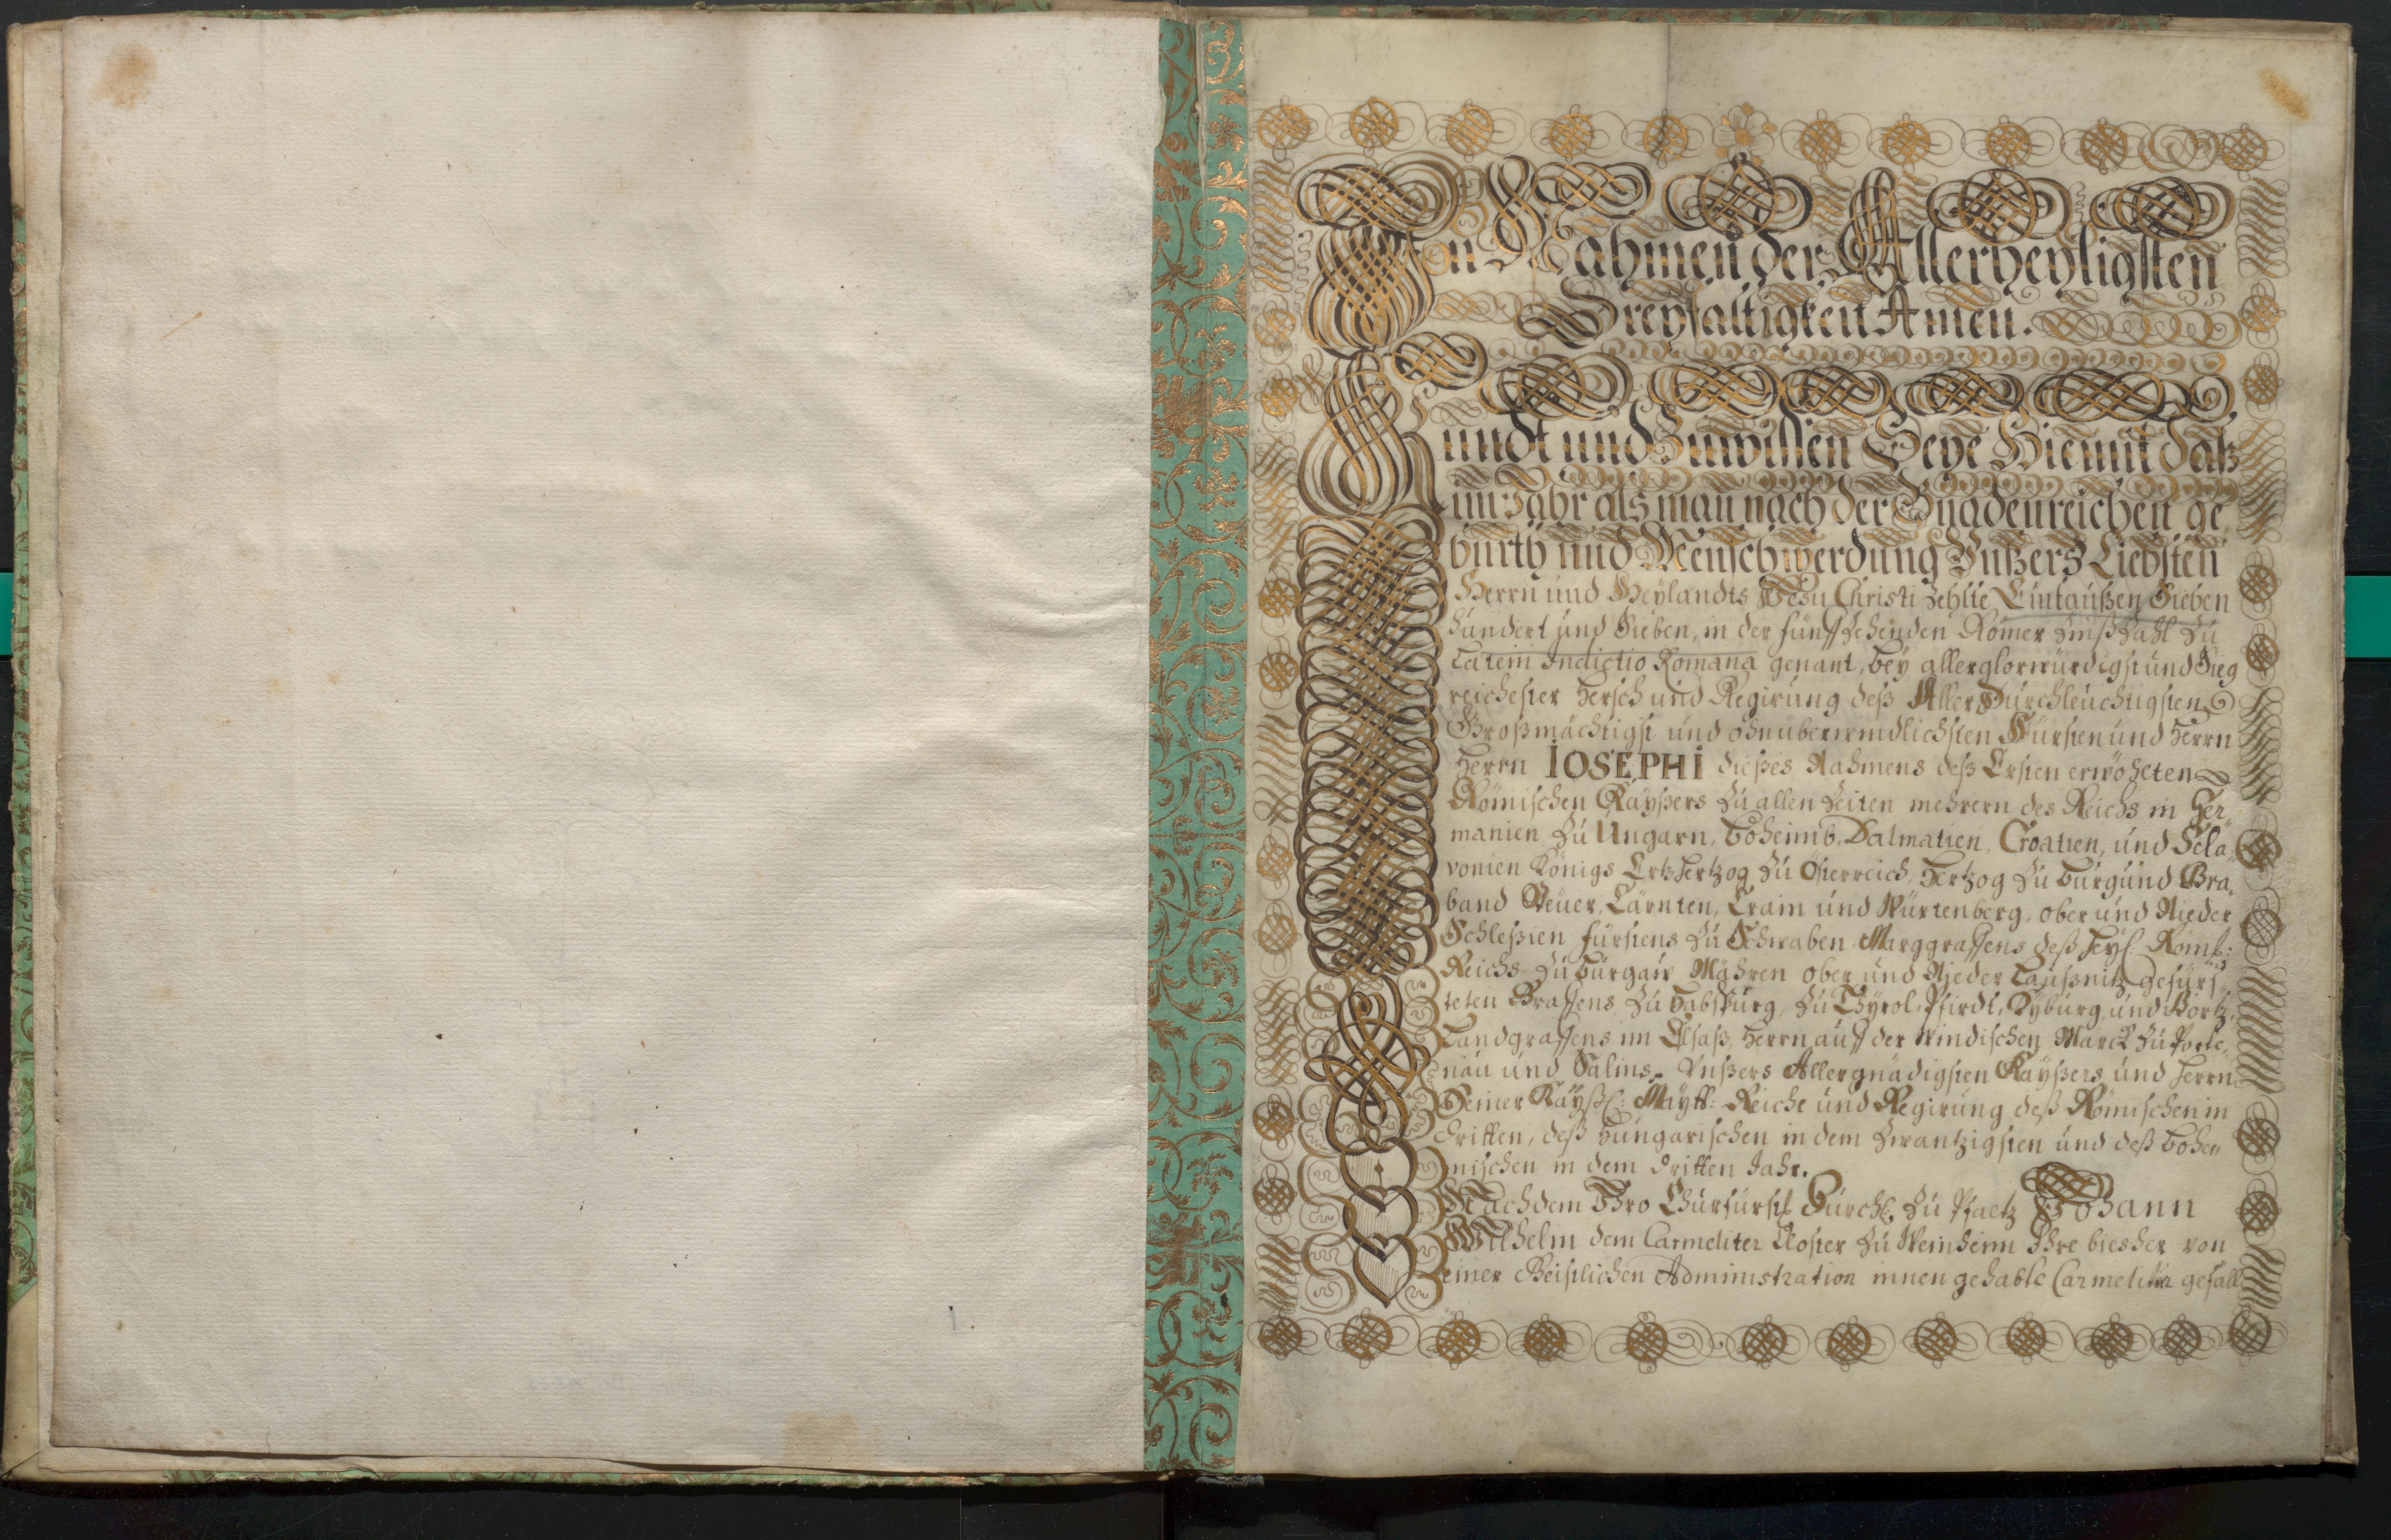 In Nahmen der Allerheyligsten
Dreyfaltigkeit Amen.
Kundt und Zuwissen Seye Hiemit daß
im Jahr als man nach der Gnadenreichen ge
burth und Menschwerdung Unßers Liebsten
Herrn und Heylandts Jesu Christi zehlte Eintaußen Sieben
hundert und Sieben, in der fünffzehenden Römer Zinßzahl zu
Latein Indictio Romana genant, bey allerglorwürdigst und Sieg
reichester Hersch und Regirung deß Allerdurchleuchtigsten
Großmächtigst und ohnüberwindlichsten Fürsten und Herrn
Herrn IOSEPHI dießes Nahmens deß Ersten erwöhlten
Römischen Kayßers zu allen Zeiten mehrern des Reichs in Ger„
manien zu Ungarn, Böheimb, Dalmatien, Croatien, und Scla„
vonien Königs Ertzhertzog zu Österreich, Hertzog zu Burgund Bra„
band Steüer, Cärnten, Crain und Würtenberg, ober und Nieder
Schleßien fürstens zu Schwaben Marggraffens deß heyl. Röm:
Reichs zu Burgaw Mähren ober und Nieder Laußnitz gefürs„
teten Graffens zu Habsburg, zu Thyrol, Pfirdt, Kyburg, und Görtz,
Landgraffens im Elsaß, Herrn auff der Windischen Marck zu Porte„
nau und Salins, Unßers Allergnädigsten Kayßers und Herrn
Seiner Kayßl: Maytt: Reiche und Regirung deß Römischen in
dritten, deß Hungarischen in dem Zwantzigsten und deß Bohe„
mischen in dem dritten Jahr.
Nachdem Ihro Churfürstl Durchl. zu Pfaltz Johann
Wilhelm dem Carmeliter Closter zu Weinheim Ihre bießher von
einer Geistlichen Administration innen gehabte Carmeliter gefäll